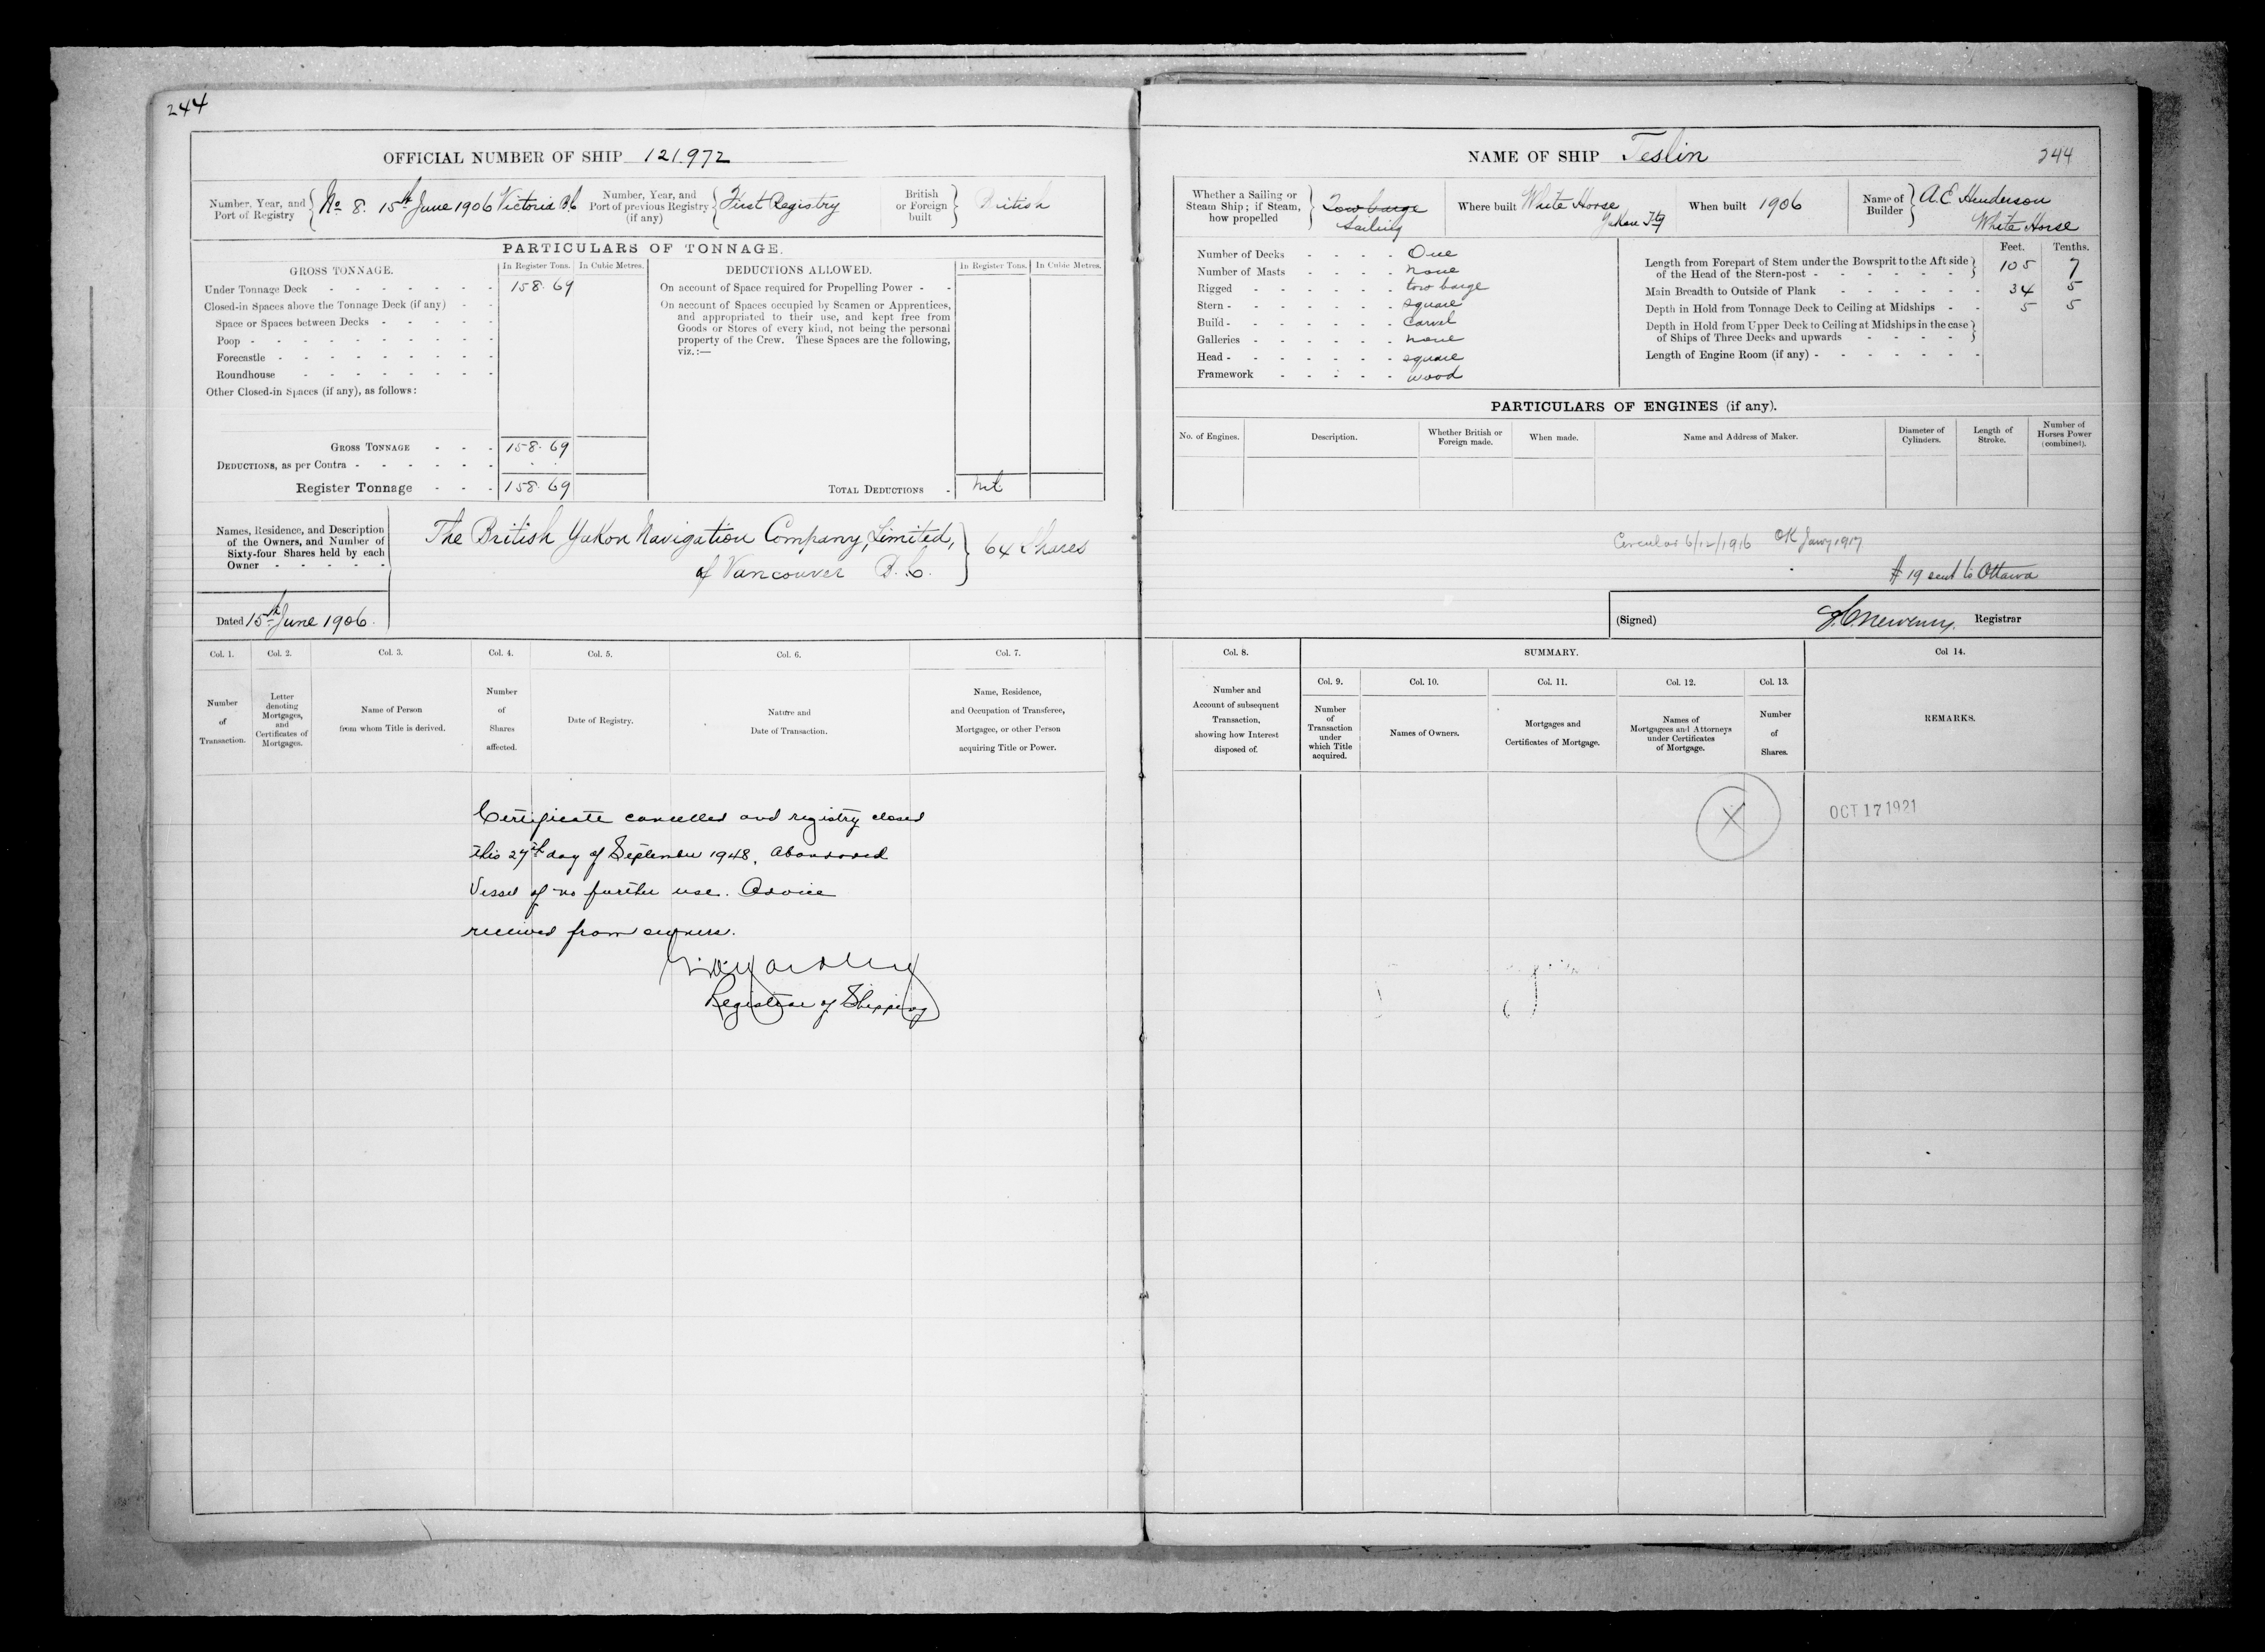 244
OFFICIAL NUMBER OF SHIP 121.972
Number, Year, and Port of Registry No 8. 15th June 1906 Victoria B.C
Number, Year, and Port of previous Registry (if any) First Registry
British or Foreign built British
PARTICULARS OF TONNAGE.
GROSS TONNAGE. In Register Tons. In Cubic Metres.
DEDUCTIONS ALLOWED. In Register Tons. In Cubic Metres.
Under Tonnage Deck 158.69
Closed-in Spaces above the Tonnage Deck (if any)
Space or Spaces between Decks
Poop
Forecastle
Roundhouse
Other Closed-in Spaces (if any), as follows:
GROSS TONNAGE 158.69
DEDUCTIONS, as per Contra
Register Tonnage 158.69
On account of Space required for Propelling Power
On account of Spaces occupied by Seamen or Apprentices,
and appropriated to their use, and kept free from
Goods or Stores of every kind, not being the personal
property of the Crew. These Spaces are the following,
viz.:—
TOTAL DEDUCTIONS nil
Names, Residence, and Description
of the Owners, and Number of
Sixty-four Shares held by each
Owner
The British Yukon Navigation Company, Limited,
of Vancouver B.C. 64 Shares
Dated 15th June 1906.
Col. 1. Col. 2. Col. 3. Col. 4. Col. 5. Col. 6. Col. 7.
Number of Transaction.
Letter denoting Mortgages, and Certificates of Mortgages.
Name of Person from whom Title is derived.
Number of Shares affected.
Date of Registry.
Nature and Date of Transaction.
Name, Residence, and Occupation of Transferee, Mortgagee, or other Person acquiring Title or Power.
Certificate cancelled and registry closed
this 27th day of September 1948. Abandoned
Vessel of no further use. Advice
received from owners.
Registrar of Shipping
NAME OF SHIP Teslin
244
Whether a Sailing or Steam Ship; if Steam, how propelled Tow barge Sailing
Where built White Horse Yukon Ty
When built 1906
Name of Builder A.E. Henderson White Horse
Number of Decks One
Number of Masts none
Rigged tow barge
Stern square
Build carvel
Galleries none
Head square
Framework wood
Feet. Tenths.
Length from Forepart of Stem under the Bowsprit to the Aft side of the Head of the Stern-post 105 7
Main Breadth to Outside of Plank 34 5
Depth in Hold from Tonnage Deck to Ceiling at Midships 5 5
Depth in Hold from Upper Deck to Ceiling at Midships in the case of Ships of Three Decks and upwards
Length of Engine Room (if any)
PARTICULARS OF ENGINES (if any).
No. of Engines. Description. Whether British or Foreign made. When made. Name and Address of Maker. Diameter of Cylinders. Length of Stroke. Number of Horses Power (combined).
Circular 6/12/1916 OK Jany 1917
# 19 sent to Ottawa
(Signed) Registrar
Col. 8. SUMMARY. Col 14.
Col. 9. Col. 10. Col. 11. Col. 12. Col. 13.
Number and Account of subsequent Transaction, showing how Interest disposed of.
Number of Transaction under which Title acquired.
Names of Owners.
Mortgages and Certificates of Mortgage.
Names of Mortgagees and Attorneys under Certificates of Mortgage.
Number of Shares.
REMARKS.
X
OCT 17 1921